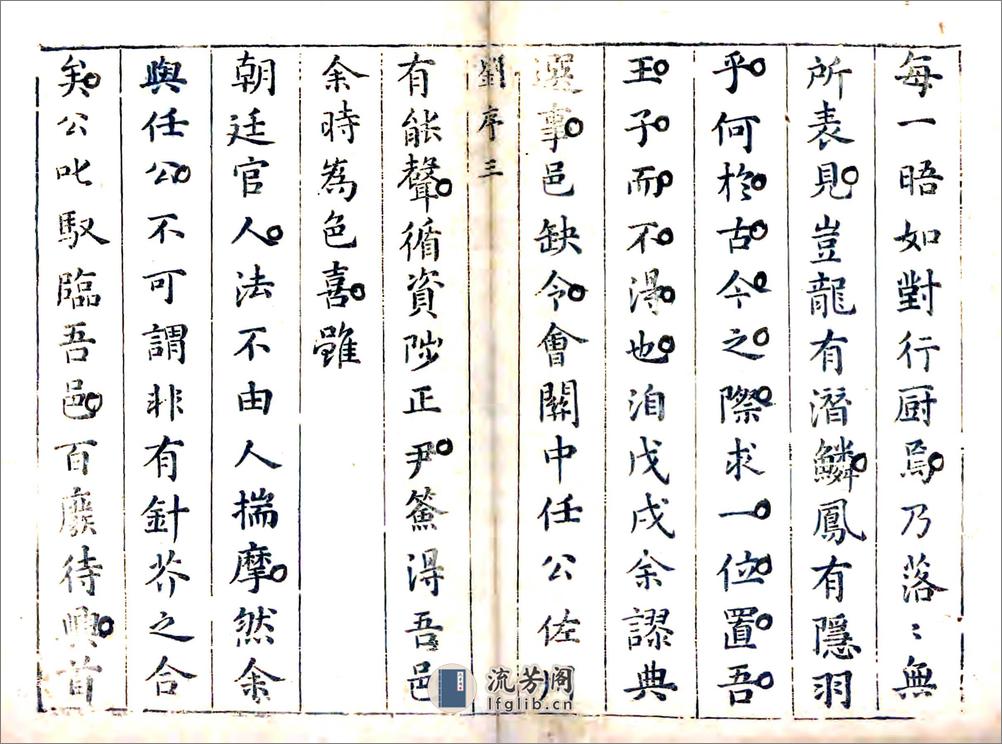 每一晤如對行厨焉乃落〻無
所表見豈龍有潛鱗鳳有隱羽
乎何於古今之際求一位置吾
王子而不淂也洎戊戌余謬典
選事邑缺令會關中任公佐
劉序 三
有能聲循資陟正尹籖淂吾邑
余時為色喜雖
朝廷官人法不由人揣摩然余
與任公不可謂非有針芥之合
矣公叱馭臨吾邑百廢待興首
流芳阁
lfglib.cn